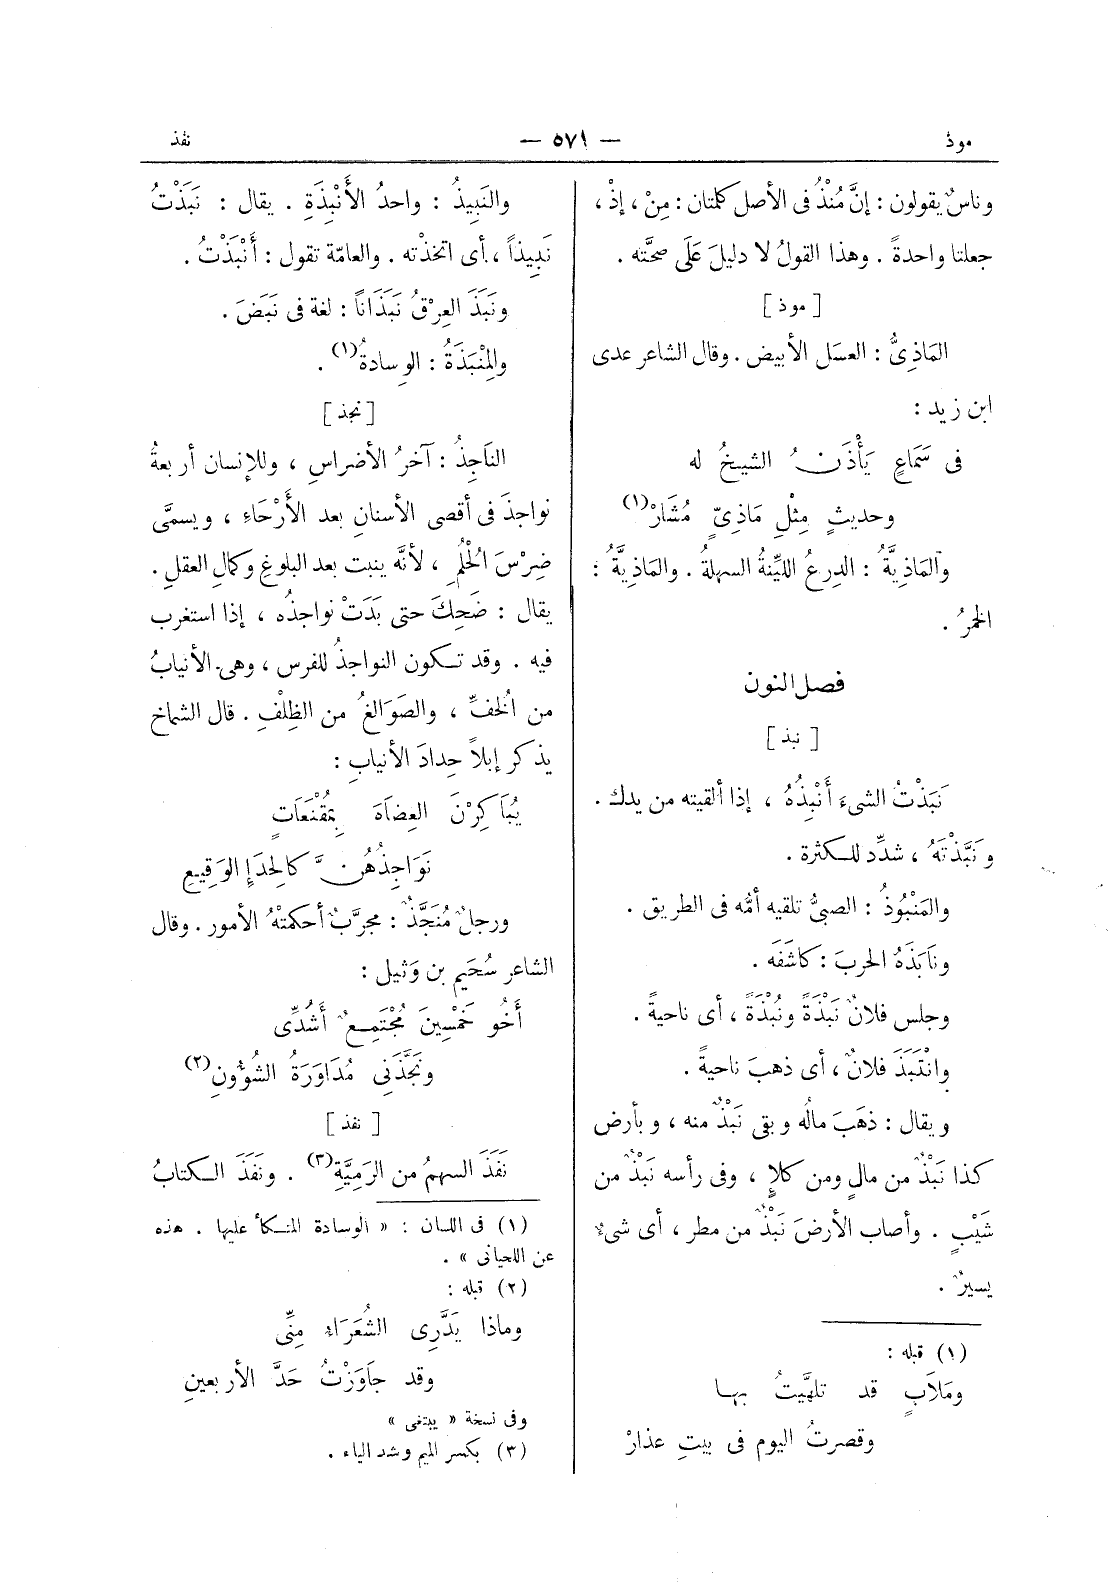 موذ — ٥٧١ — نفذ
وناسٌ يقولون : إنَّ مُنْذُ فى الأصل كلمتان : مِنْ ، إذْ ،
جعلتا واحدةً . وهذا القولُ لا دليلَ عَلَى صحَّته .
[ موذ ]
المَاذِىُّ : العسَل الأبيض . وقال الشاعر عدى
ابن زيد :
فى سَمَاعٍ يَأْذَنُ الشيخُ له
وحديثٍ مِثْلِ مَاذِىّ مُشَارْ (١)
والمَاذِيَّةُ : الدِرعُ الليِّنةُ السهلةُ . والماذِيَّةُ :
الخمرُ .
فصل النون
[ نبذ ]
نَبَذْتُ الشىءَ أَنْبِذُهُ ، إذا ألقيته من يدك .
ونَبَّذْتَهُ ، شدِّد للكثرة .
والمَنْبُوذُ : الصبىُّ تلقيه أمُّه فى الطريق .
ونَابَذَهُ الحربَ : كاشَفَه .
وجلس فلانٌ نَبْذَةً ونُبْذَةً ، أى ناحيةً .
وانْتَبَذَ فلانٌ ، أى ذهبَ ناحيةً .
ويقال : ذهَبَ مالُه وبقى نَبْذٌ منه ، وبأرض
كذا نَبْذٌ من مالٍ ومن كلإٍ ، وفى رأسه نَبْذٌ من
شَيْبٍ . وأصاب الأرضَ نَبْذٌ من مطر ، أى شىءٌ
يسيرٌ .
(١) قبله :
ومَلاَبٍ قد تلهَّيتُ بها
وقصرتُ اليوم فى بيتِ عذارْ
والنَبِيذُ : واحدُ الأَنْبِذَةِ . يقال : نَبَذْتُ
نَبِيذاً ، أى اتخذْته . والعامّة تقول : أَنْبَذْتُ .
ونَبَذَ العِرْقُ نَبَذَاناً : لغة فى نَبَضَ .
والمِنْبَذَةُ : الوِسادةُ (١) .
[ نجذ ]
النَاجِذُ : آخرُ الأضراسِ ، وللإنسان أربعةُ
نواجذَ فى أقصى الأسنانِ بعد الأَرْحَاءِ ، ويسمَّى
ضِرْسَ الحُلُمِ ، لأنَّه ينبت بعد البلوغِ وكمالِ العقلِ .
يقال : ضَحِكَ حتى بَدَتْ نواجذُه ، إذا استغرب
فيه . وقد تكون النواجذُ للفرس ، وهى الأنيابُ
من الخُفِّ ، والصَوَالغُ من الظِلْفِ . قال الشماخ
يذكر إبلاً حِدادَ الأنيابِ :
يُبَاكِرْنَ العِضَاهَ بمُقْنَعَاتٍ
نَوَاجِذُهُنَّ كالحِدَإِ الوَقِيعِ
ورجلٌ مُنَجَّذٌ : مجرَّبٌ أحكمتْهُ الأمور . وقال
الشاعر سُحَيم بن وَثيل :
أَخُو خَمْسِينَ مُجْتَمِعٌ أَشُدِّى
ونَجَّذَنِى مُدَاوَرَةُ الشُؤونِ (٢)
[ نفذ ]
نَفَذَ السهمُ من الرَمِيَّةِ (٣) . ونَفَذَ الكتابُ
(١) فى اللسان : « الوسادة المتكأ عليها . هذه
عن اللحيانى » .
(٢) قبله :
وماذا يَدَّرِى الشُعَرَاءُ مِنِّى
وقد جَاوَزْتُ حَدَّ الأربعينِ
وفى نسخة « يبتغى »
(٣) بكسر الميم وشد الياء .